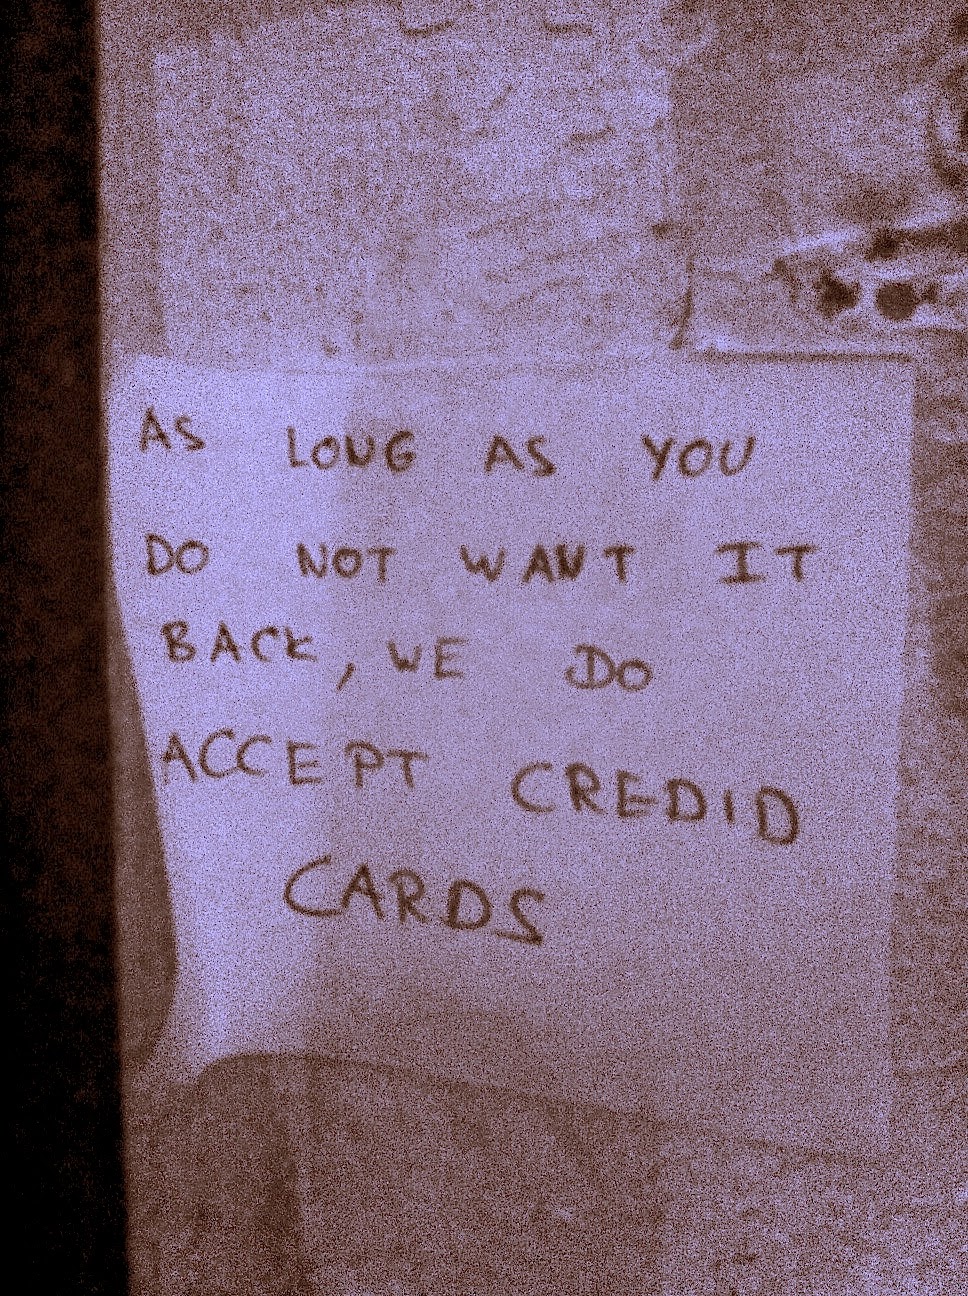 AS LONG AS YOU
DO NOT WANT IT
BACK, WE DO
ACCEPT CREDID
CARDS